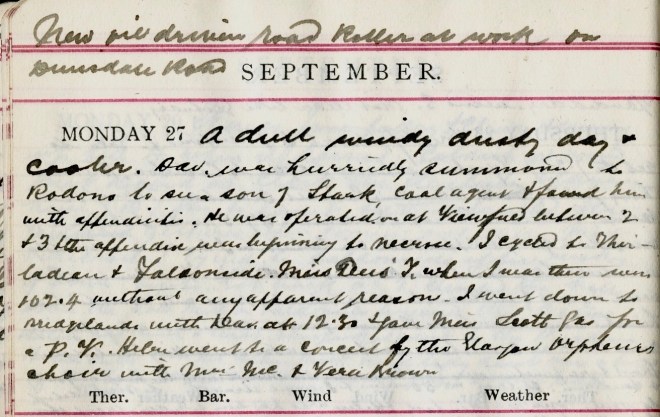 New oil driven road Roller at work on
Dunsdale Road
SEPTEMBER.
MONDAY 27 A dull windy dusty day &
cooler. Dav. was hurriedly summoned to
Rodono to see a son of Stark, coal agent & found him
with appendicitis. He was operated on at Viewfield between 2
& 3 & the appendix was beginning to necrose. I cycled to Thir-
ladean & Falsonside. Miss T. when I was there was
102.4 without any apparent reason. I went down to
with Dav. at 12.30 & gave Miss Scott gas for
a P.V. Helen went to a concert by the Glasgow Orpheus
choir with Mrs Mc. & Vera Brown
Ther. Bar. Wind Weather